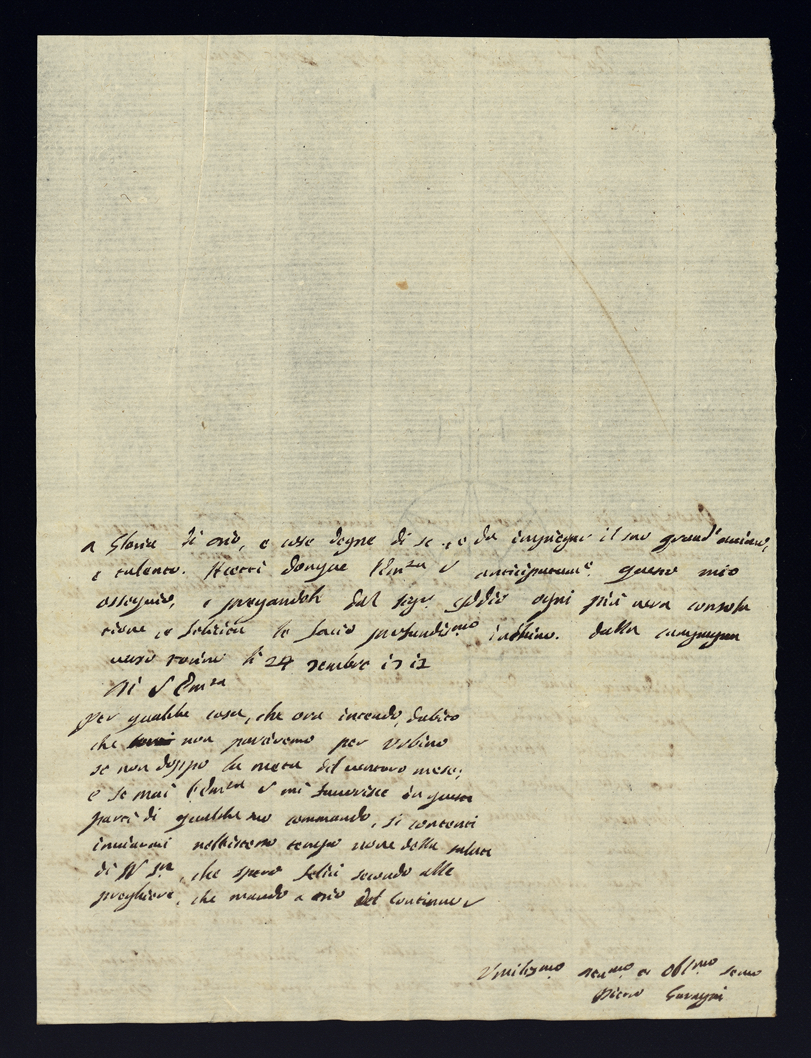 a Gloria di Dio, e cose degne di se, e da impiegar il suo grand'animo,
e talento. Accetti donque l'Em.za V anticipatam.e questo mio
ossequio, e pregandoli dal sig.r Iddio ogni più vera consola
tione, e felicità le faccio profundis.mo inchino. Dalla campagna
verso li 24 17
Di V Em.za
per qualche cosa, che ora intendo, dubito
che non partiremo per Urbino
se non doppo la metà del venturo mese;
e se mai l'Em.za V mi favorisce in queste
parti di qualche suo commando, si contenti
inviarmi nell'istesso tempo nove della salute
di N S.re, che spero felici secondo alle
preghiere, che mando a Dio del continuo
Umiliss.mo et Obl.mo Servo